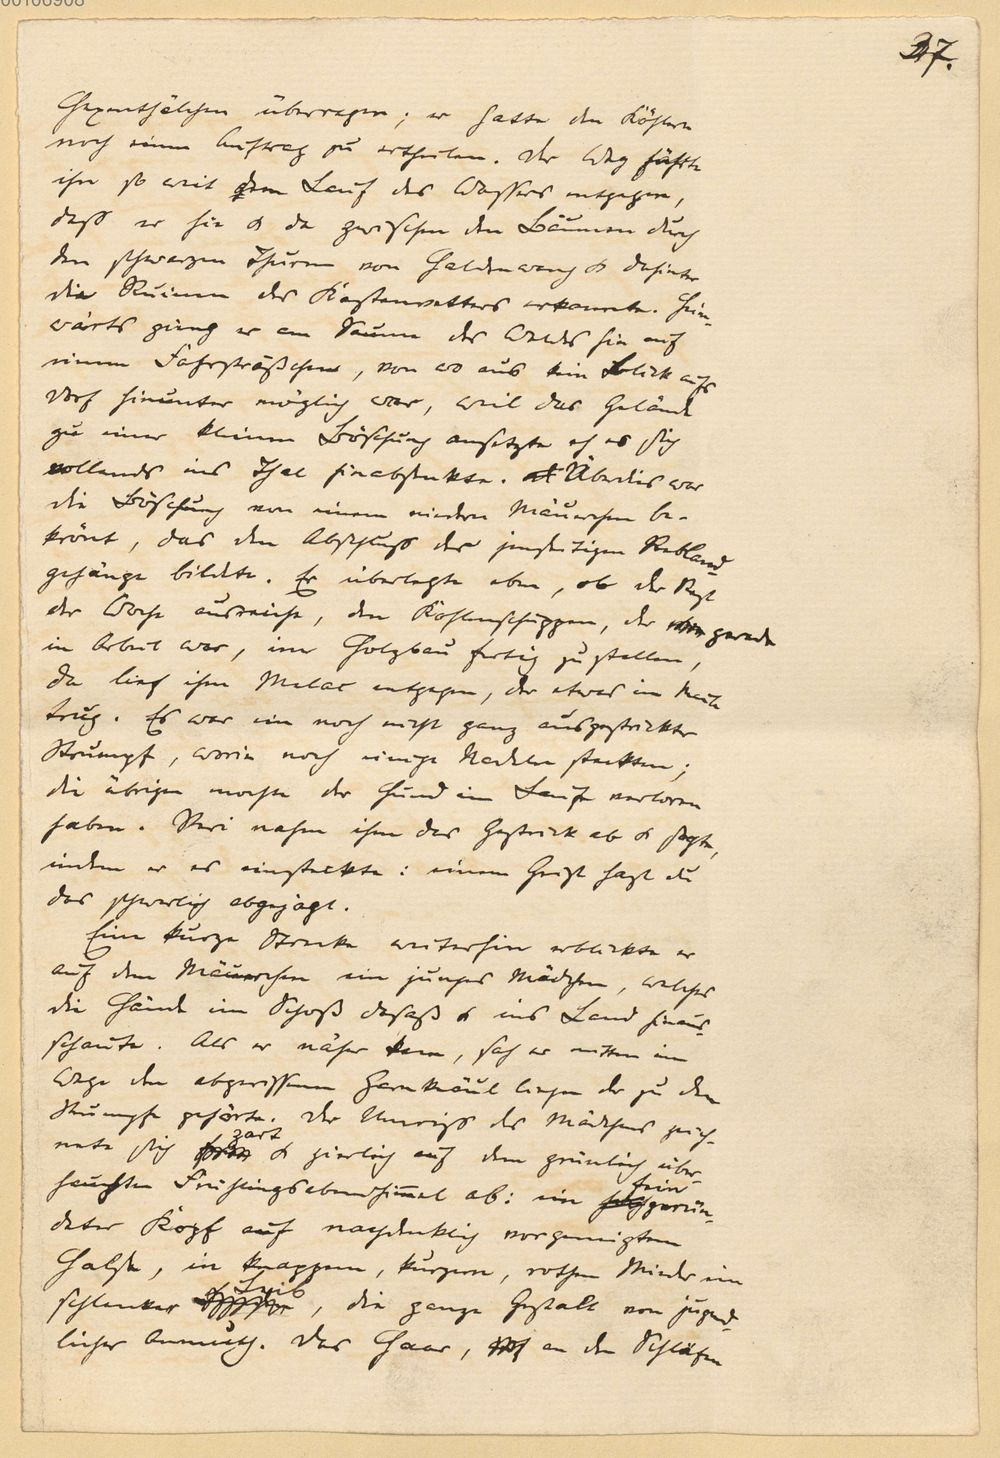 00106908
37.
Hexenthälchen überragen; er hatte den Köhlern
noch einen Auftrag zu ertheilen. Der Weg führte
ihn so weit dem Lauf des Wassers entgegen,
dass er hie & da zwischen den Bäumen durch
den schwarzen Thurm von Haldenwang & dahinter
die Ruinen des Kastenvatters erkannte. Heim-
wärts gieng er am Saum des Waldes hin auf
einem Fahrsträßchen, von wo aus kein Blick aufs
Dorf hinunter möglich war, weil das Gelände
zu einer kleinen Böschung ansetzte eh es sich
vollends ins Thal hinabsenkte. Überdies war
die Böschung von einem niedern Mäuerchen be-
krönt, das den Abschluss der jenseitigen Rebland-
gehänge bildete. Er überlegte eben, ob der Rest
der Woche ausreiche, den Kohlenschuppen, der gerade
in Arbeit war, im Holzbau fertig zu stellen,
da lief ihm Melac entgegen, der etwas im Maule
trug. Es war ein noch nicht ganz ausgestrickter
Strumpf, worin noch einige Nadeln steckten;
die übrigen mochte der Hund im Laufe verloren
haben. Veri nahm ihm das Gestrick ab & sagte,
indem er es einsteckte: einem Geist hast du
das schwerlich abgejagt.
Eine kurze Strecke weiterhin erblickte er
auf dem Mäuerchen ein junges Mädchen, welches
die Hände im Schoß dasaß & ins Land hinaus-
schaute. Als er näher kam, sah er mitten im
Wege den abgerissenen Garnknäul liegen der zu dem
Strumpfe gehörte. Der Umriss des Mädchens zeich-
nete sich zart & zierlich auf dem grünlich über-
hauchten Frühlingsabendhimmel ab: ein fein gerün-
deter Kopf auf nachdenklich vorgeneigtem
Halse, in knappem, kurzem, rothem Mieder ein
schlanker Leib, die ganze Gestalt von jugend-
licher Anmuth. Das Haar, an den Schläfen